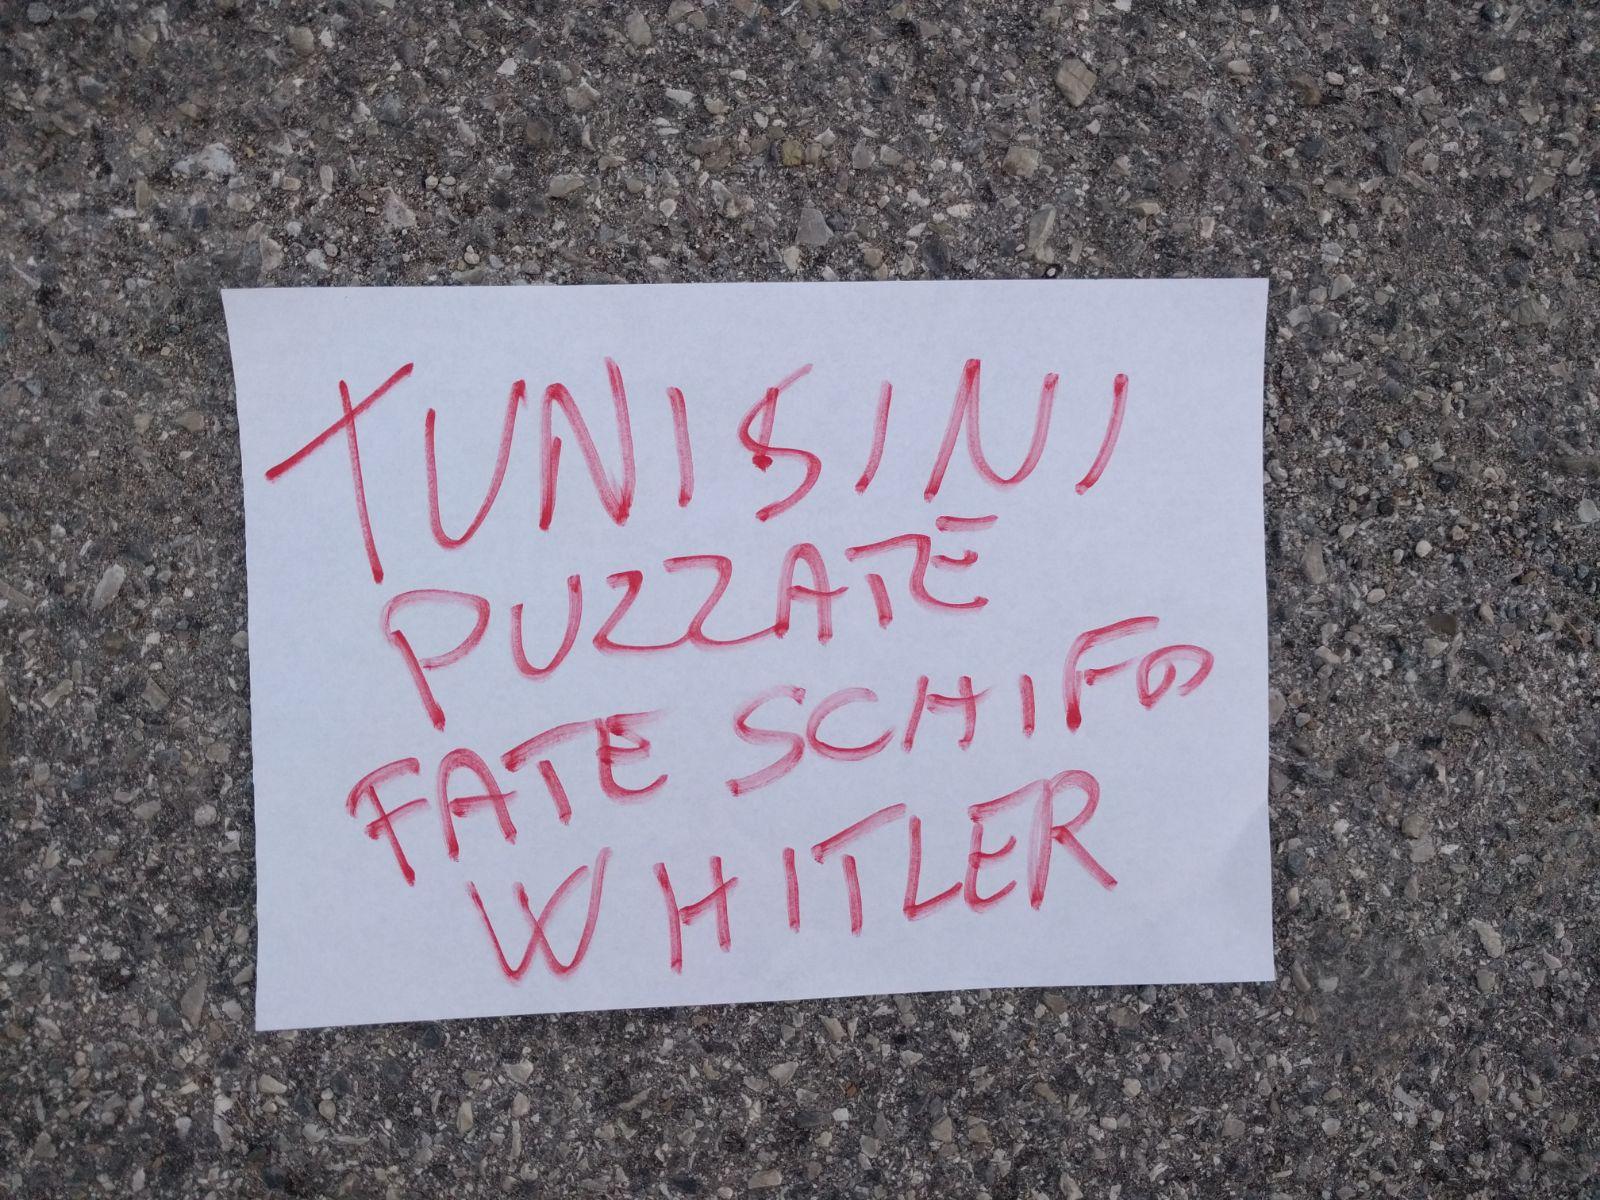 TUNISINI
PUZZATE
FATE SCHIFO
W HITLER